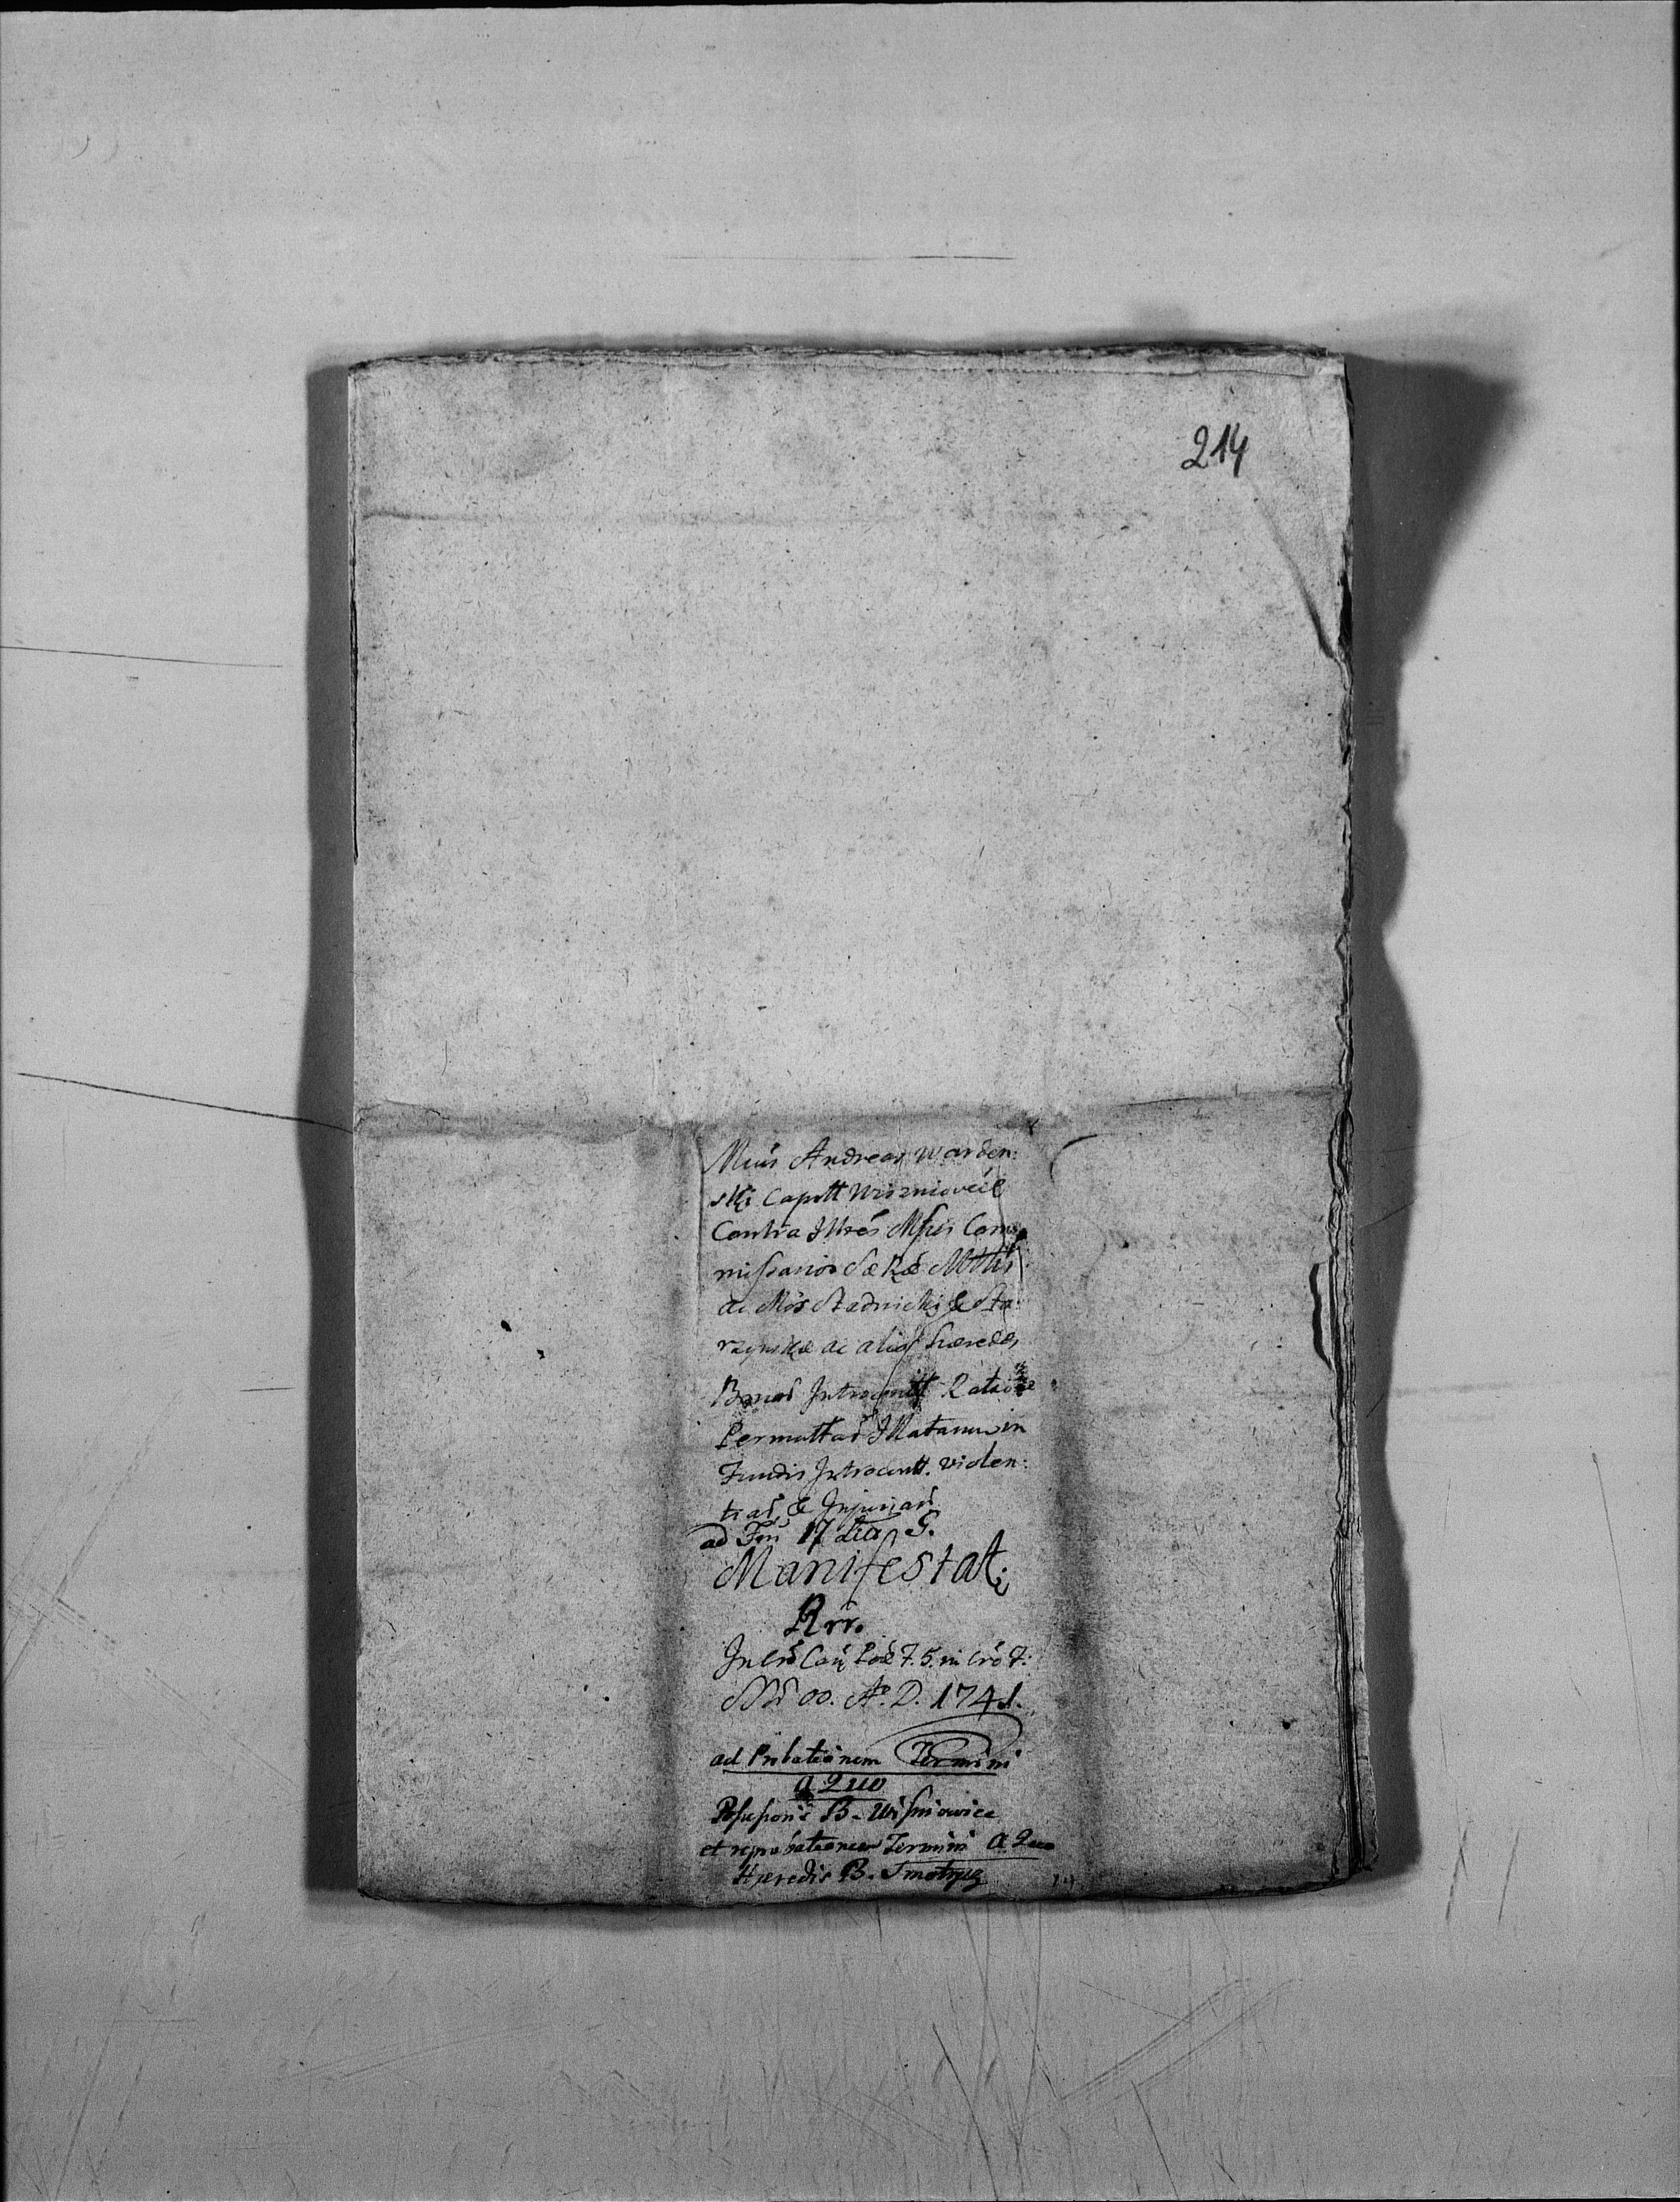 214
Mcus Andreas Warden:
ski Captt Wiszniovecę
Contra Illres Mfcos Com
missarios Sae Rae Mttis
ac Mos Stadnicki & Sta
rzynskie ac alios haeredes
Bnord Introcontt Ratione
Permuttat Illatarum in
Fundis Introcontt. violen:
tiar & Injuriar
ad Fn 17 Lra G.
Manifestat:
Rrr.
In Crō Can Pod F. 5. in crō F:
A° D. 1741.
ad Probationem Termini
a Quo
Possessoris B. Wisniowice
et reprobationem Termini a Quo
Heredis B. Smotrycz